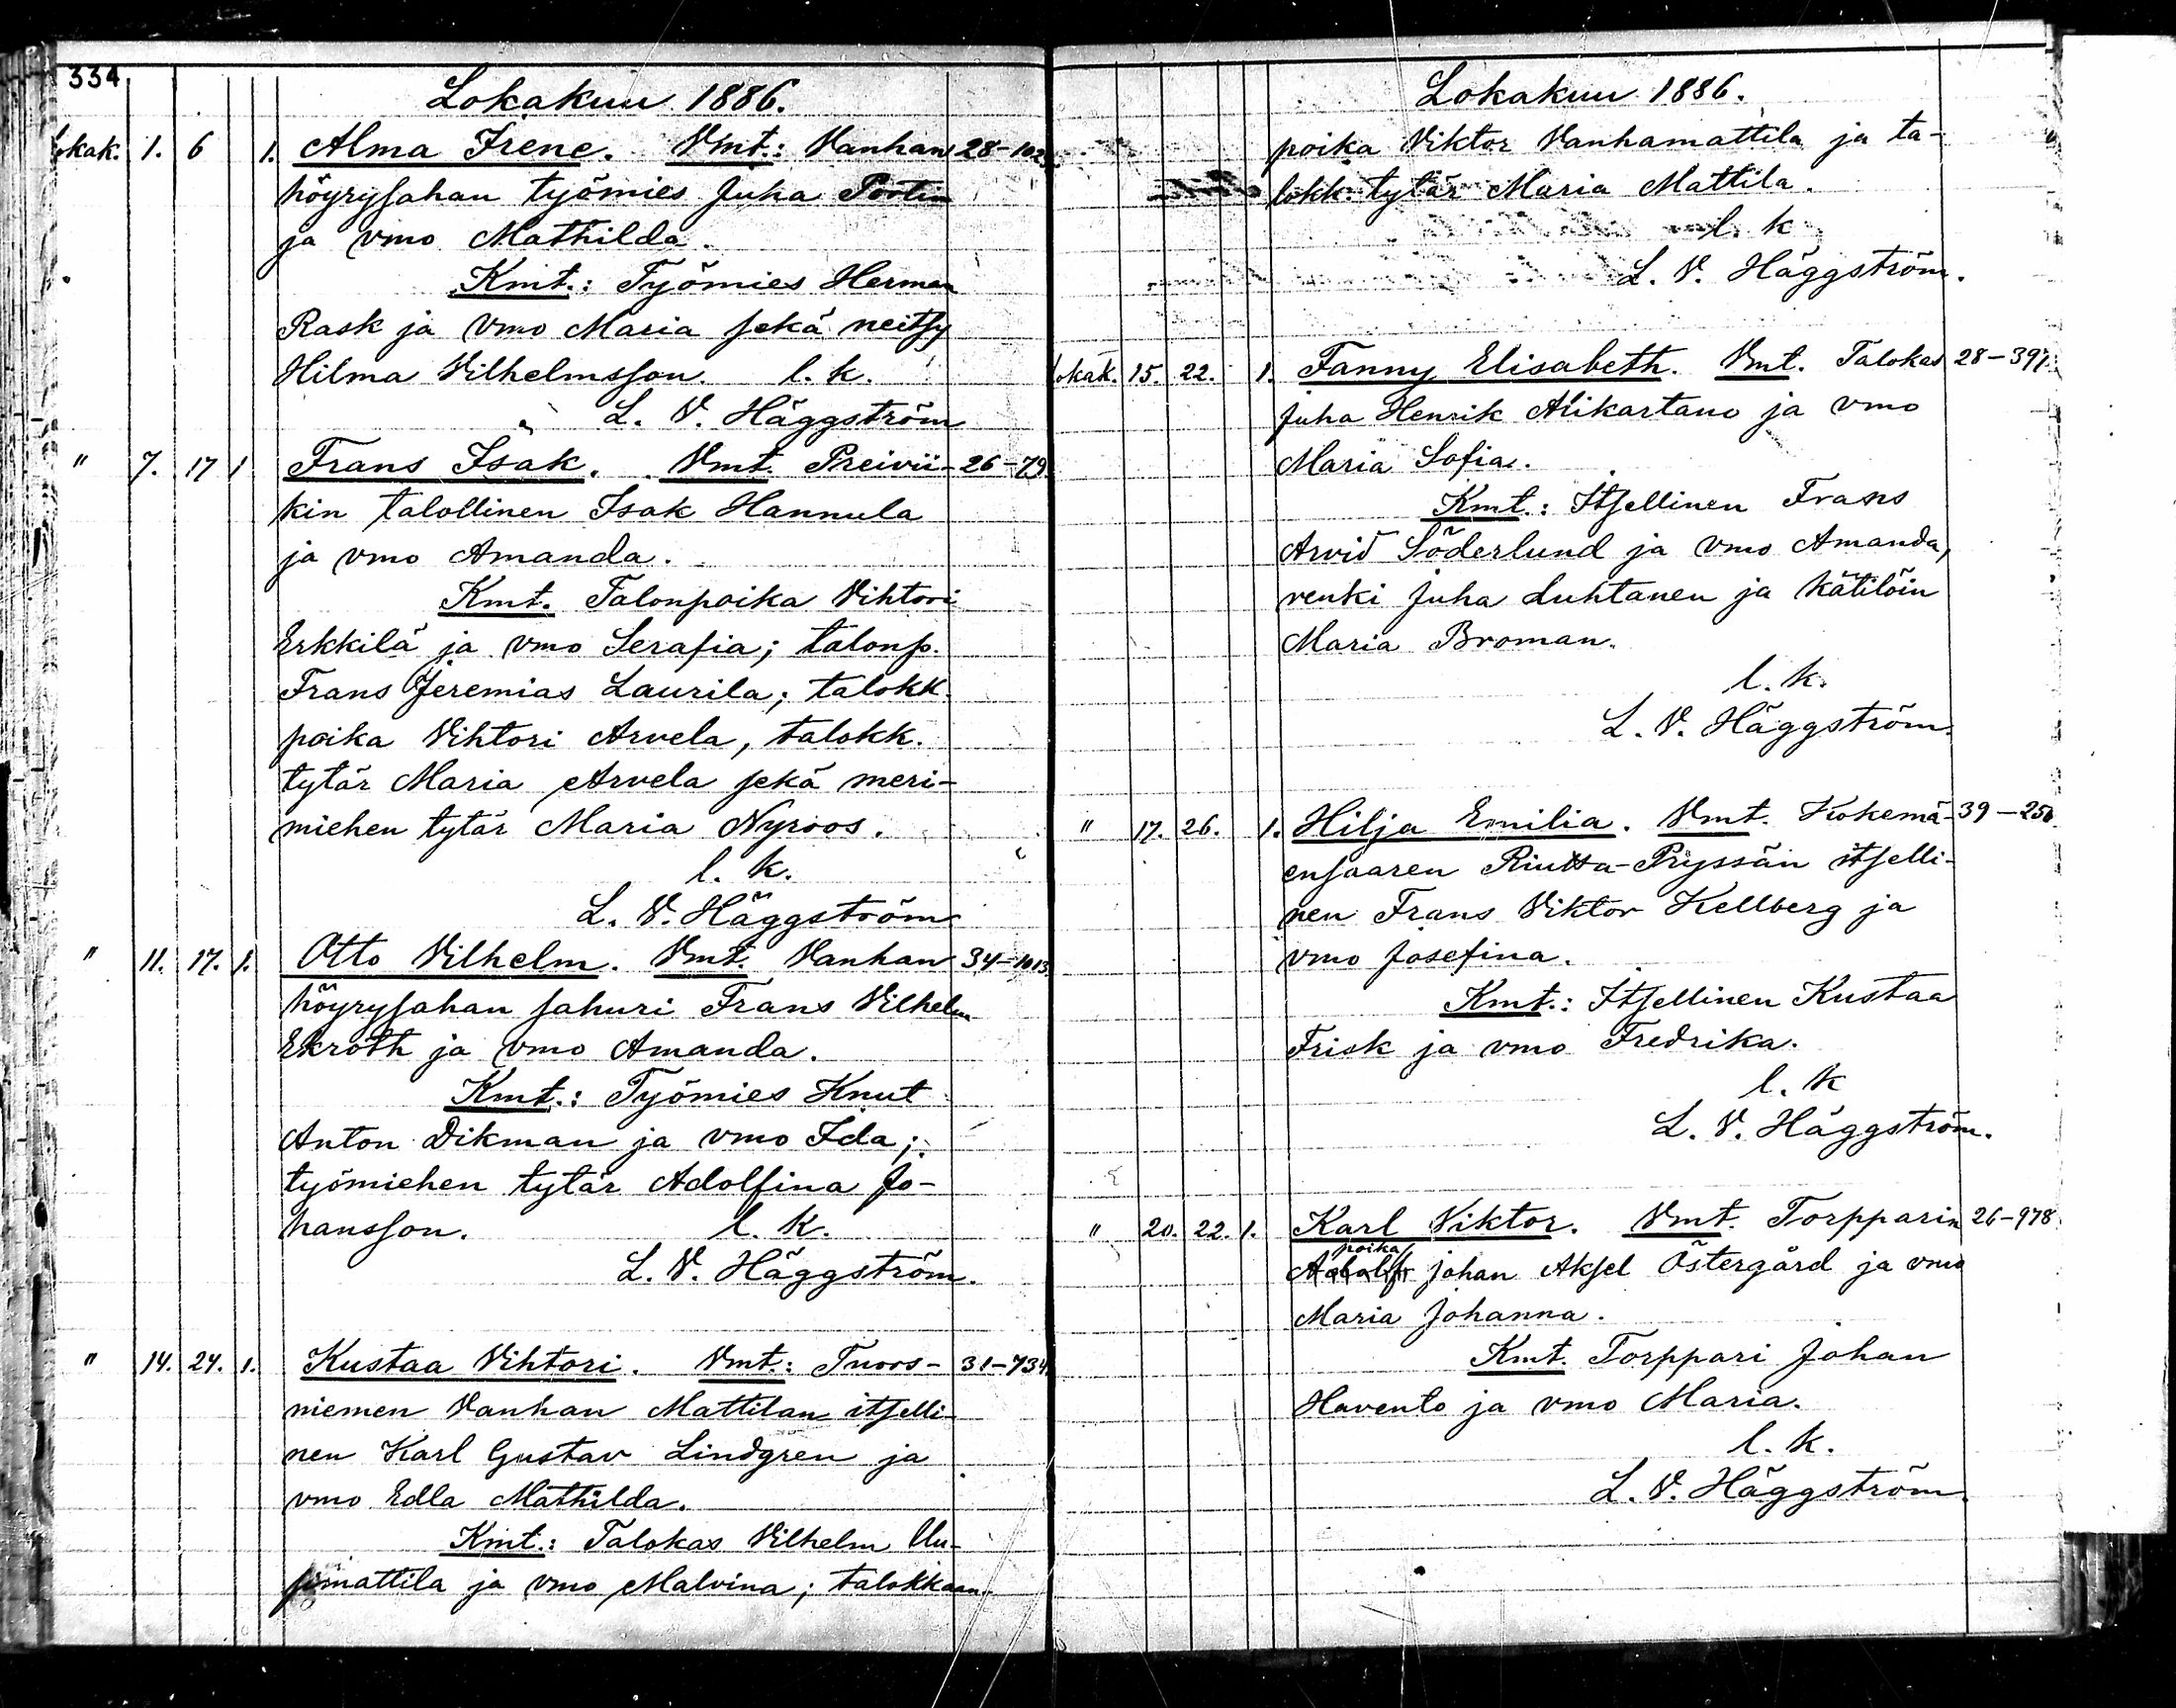 334
Lokakuu 1886.
Lokak. 1. 6 1. Alma Irene. Vmt.: Vanhan 28-102
höyrysahan työmies Juha Portin
ja vmo Mathilda.
Kmt.: Työmies Herman
Rask ja vmo Maria sekä neitsy
Hilma Vilhelmsson. l. k.
L. V. Häggström
" 7. 17 1 Frans Isak. Vmt. Preivii- 26-79
kin talollinen Isak Hannula
ja vmo Amanda.
Kmt. Talonpoika Vihtori
Erkkilä ja vmo Serafia; talonp.
Frans Jeremias Laurila; talokk.
poika Vihtori Arvela, talokk.
tytär Maria Arvela sekä meri-
miehen tytär Maria Nyroos.
l. k.
L. V. Häggström
" 11. 17. 1. Otto Vilhelm. Vmt. Vanhan 34-1013
höyrysahan sahuri Frans Vilhelm
Ekroth ja vmo Amanda.
Kmt.: Työmies Knut
Anton Dikman ja vmo Ida;
työmiehen tytär Adolfina Jo-
hansson. l. k.
L. V. Häggström.
" 14. 24. 1. Kustaa Vihtori. Vmt.: Tuoos- 31-734
niemen Vanhan Mattilan itselli-
nen Karl Gustav Lindgren ja
vmo Edla Mathilda.
Kmt.: Talokas Vilhelm Uu-
simattila ja vmo Malvina; talokkaan
Lokakuu 1886.
poika Viktor Vanhamattila ja ta-
lokk. tytär Maria Mattila.
l. k
L. V. Häggström.
Lokak. 15. 22. 1. Fanny Elisabeth. Vmt. Talokas 28-397
Juha Henrik Alikartano ja vmo
Maria Sofia.
Kmt.: Itsellinen Frans
Arvid Söderlund ja vmo Amanda,
renki Juha Luhtanen ja kätilöin
Maria Broman.
l. k.
L. V. Häggström.
" 17. 26. 1. Hilja Emilia. Vmt. Kokemä- 39-250
ensaaren Riutta-Pryssän itselli-
nen Frans Viktor Kellberg ja
vmo Josefina.
Kmt.: Itsellinen Kustaa
Frisk ja vmo Fredrika.
l. k
L. V. Häggström.
" 20. 22. 1. Karl Viktor. Vmt. Torpparin 26-978
poika
Johan Aksel Östergård ja vmo
Maria Johanna.
Kmt. Torppari Johan
Havento ja vmo Maria.
l. k.
L. V. Häggström.